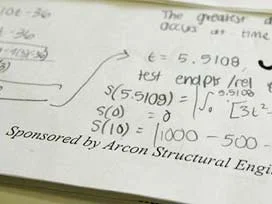 10t - 36
The greatest
occurs at time
t - 36
t = 5.5108,
test endpts /rel
S(5.5108) = |∫₀^5.5108 [3t²-
S(0) = 0
S(10) = |1000 - 500 -
Sponsored by Arcon Structural Engi